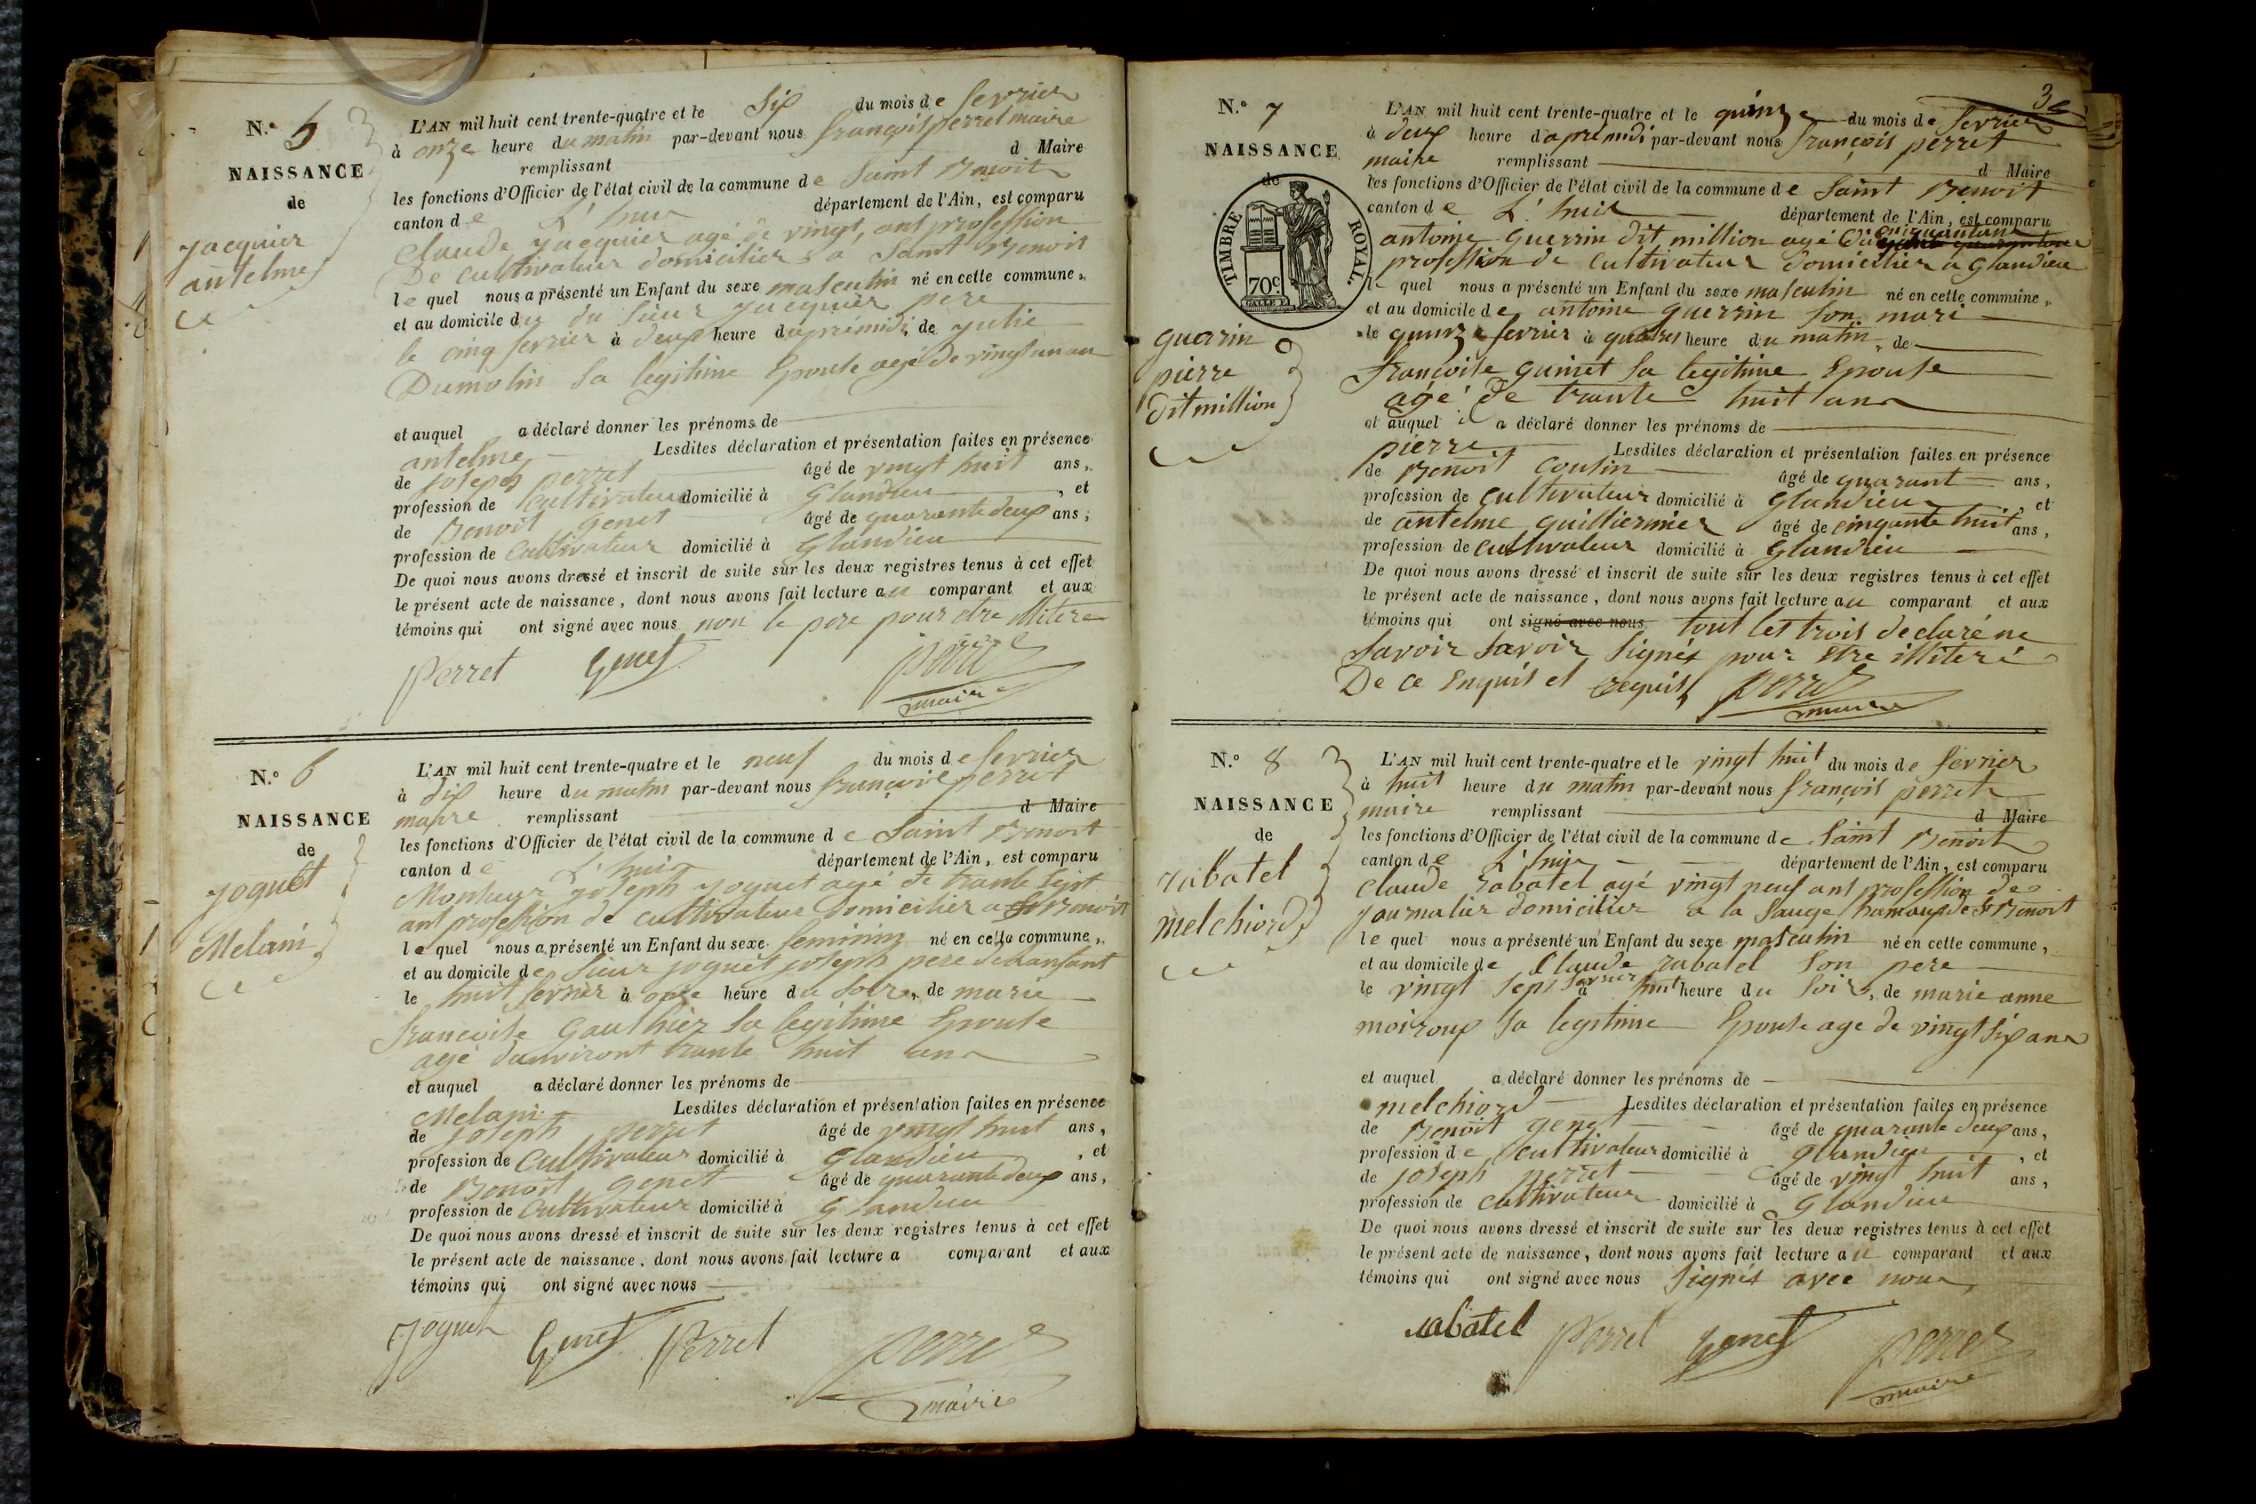 N.o 5
NAISSANCE
de
jacquier
antelme
L'AN mil huit cent trente-quatre et le Six du mois de fevrier
à onze heure du matin par-devant nous françois perret maire
remplissant d Maire
les fonctions d'Officier de l'état civil de la commune de Saint Benoit
canton de L'huis département de l'Ain, est comparu
Claude jacquier agé de vingt, ans profession
De cultivateur domicilier a Saint Benoit
le quel nous a présenté un Enfant du sexe masculin né en cette commune,
et au domicile du Sieur jacquier pere
le cinq fevrier à deux heure daprémidi de julie
Dumolin Sa legitime Epouse agé de vingt un an
et auquel a déclaré donner les prénoms de
antelme Lesdites déclaration et présentation faites en présence
de joseph perret âgé de vingt huit ans,
profession de Cultivateur domicilié à Glandieu, et
de Benoit genet âgé de quarante deux ans,
profession de Cultivateur domicilié à Glandieu
De quoi nous avons dressé et inscrit de suite sur les deux registres tenus à cet effet
le présent acte de naissance, dont nous avons fait lecture au comparant et aux
témoins qui ont signé avec nous non le pere pour etre illitere
Perret Genet Perret
maire
N.o 6
NAISSANCE
de
joguet
Melani
L'AN mil huit cent trente-quatre et le neuf du mois de fevrier
à dix heure du matin par-devant nous françois perret
maire remplissant d Maire
les fonctions d'Officier de l'état civil de la commune de Saint Benoit
canton de L'huis département de l'Ain, est comparu
Monsieur joseph joguet agé de trante sept
ans profession de cultivateur domicilier a St Benoit
le quel nous a présenté un Enfant du sexe feminin né en cette commune,
et au domicile de Sieur joguet joseph pere de lanfant
le huit fevrier à onze heure du Soir, de marie
francoise Gauthier Sa legitime Epouse
agé danviront trante huit ans
et auquel a déclaré donner les prénoms de
Melani Lesdites déclaration et présentation faites en présence
de joseph perret âgé de vingt huit ans,
profession de Cultivateur domicilié à Glandieu, et
de Benoit genet âgé de quarante deux ans,
profession de Cultivateur domicilié à Glandieu
De quoi nous avons dressé et inscrit de suite sur les deux registres tenus à cet effet
le présent acte de naissance, dont nous avons fait lecture a comparant et aux
témoins qui ont signé avec nous
joguet Genet Perret Perret
maire
3e
N.o 7
NAISSANCE
de
TIMBRE ROYAL.
70c.
guerin
pierre
dit million
L'AN mil huit cent trente-quatre et le quinze du mois de fevrier
à deux heure d'apremidi par-devant nous françois perret
maire remplissant d Maire
les fonctions d'Officier de l'état civil de la commune de Saint Benoit
canton de L'huis département de l'Ain, est comparu
antoine guerrin dit million agé de cinquantans
profession de cultivateur domicilier a Glandieu
le quel nous a présenté un Enfant du sexe masculin né en cette commune,
et au domicile de antoine guerrin Son mari
le quinze fevrier à quatres heure du matin, de
françoise guinet Sa legitime Epouse
agé de trante huit ans
et auquel il a déclaré donner les prénoms de
pierre Lesdites déclaration et présentation faites en présence
de Benoit Cousin âgé de quarant ans,
profession de Cultivateur domicilié à Glandieu, et
de antelme guilliermier âgé de cinquante huit ans,
profession de cultivateur domicilié à Glandieu
De quoi nous avons dressé et inscrit de suite sur les deux registres tenus à cet effet
le présent acte de naissance, dont nous avons fait lecture au comparant et aux
témoins qui ont signé avec nous, tout les trois declaré ne
Savoir Savoir Signés pour etre illiteré
De ce Enquis et requis Perret
maire
N.o 8
NAISSANCE
de
rabatel
melchiord
L'AN mil huit cent trente-quatre et le vingt huit du mois de fevrier
à huit heure du matin par-devant nous françois perret
maire remplissant d Maire
les fonctions d'Officier de l'état civil de la commune de Saint Benoit
canton de L'huis département de l'Ain, est comparu
Claude rabatel agé vingt neuf ans profession de
journalier domicilier a la Sauge hamaux de St Benoit
le quel nous a présenté un Enfant du sexe masculin né en cette commune,
et au domicile de Claude rabatel Son pere
le vingt Sept fevrier à huit heure du Soir, de marie anne
moiroux Sa legitime Epouse age de vingt Six ans
et auquel a déclaré donner les prénoms de
melchiord Lesdites déclaration et présentation faites en présence
de Benoit genet âgé de quarante deux ans,
profession de Cultivateur domicilié à Glandieu, et
de joseph perret âgé de vingt huit ans,
profession de cultivateur domicilié à Glandieu
De quoi nous avons dressé et inscrit de suite sur les deux registres tenus à cet effet
le présent acte de naissance, dont nous avons fait lecture au comparant et aux
témoins qui ont signé avec nous Signés avec nous
rabatel Perret Genet Perret
maire